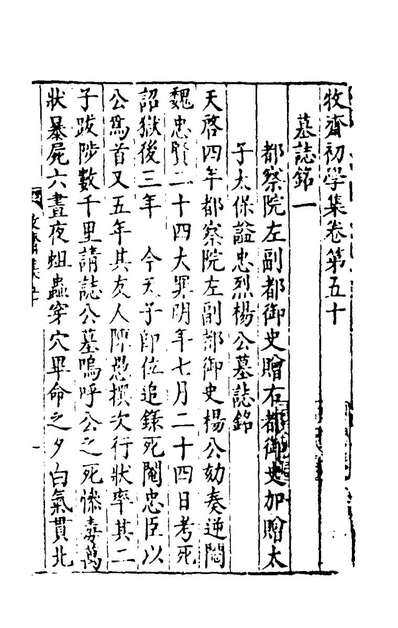 牧齋初學集卷第五十
墓誌銘一
都察院左副都御史贈右都御史加贈太
子太保謚忠烈楊公墓誌銘
天啓四年都察院左副都御史楊公劾奏逆閹
魏忠賢二十四大罪明年七月二十四日考死
詔獄後三年 今天子即位追錄死閹忠臣以
公爲首又五年其友人陳愚撰次行狀率其二
子跋涉數千里請誌公墓嗚呼公之死慘毒萬
狀暴屍六晝夜蛆蟲穿穴畢命之夕白氣貫北